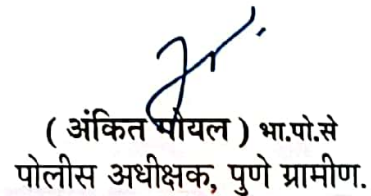 ( अंकित गोयल ) भा.पो.से
पोलीस अधीक्षक, पुणे ग्रामीण.